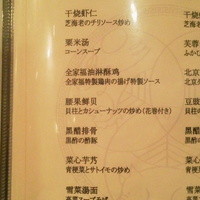 干烧虾仁
芝海老のチリソース炒め
粟米汤
コーンスープ
芙蓉
ふかし
全家福油淋酥鸡
全家福特製鶏肉の揚げ特製ソース
北京
北京
腰果鲜贝
貝柱とカシューナッツの炒め(花巻付き)
豆豉
黒醋排骨
黒酢の酢豚
黒醋
菜心芋艿
青梗菜とサトイモの炒め
雪菜湯面